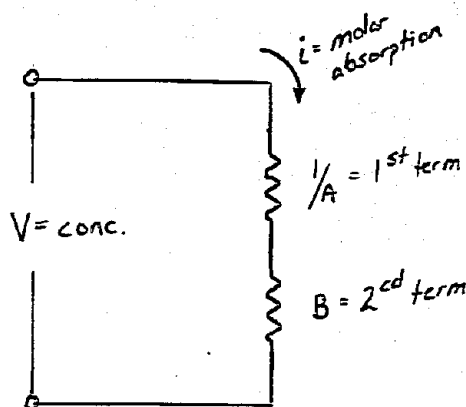 i = molar
absorption
1/A = 1st term
V = conc.
B = 2cd term